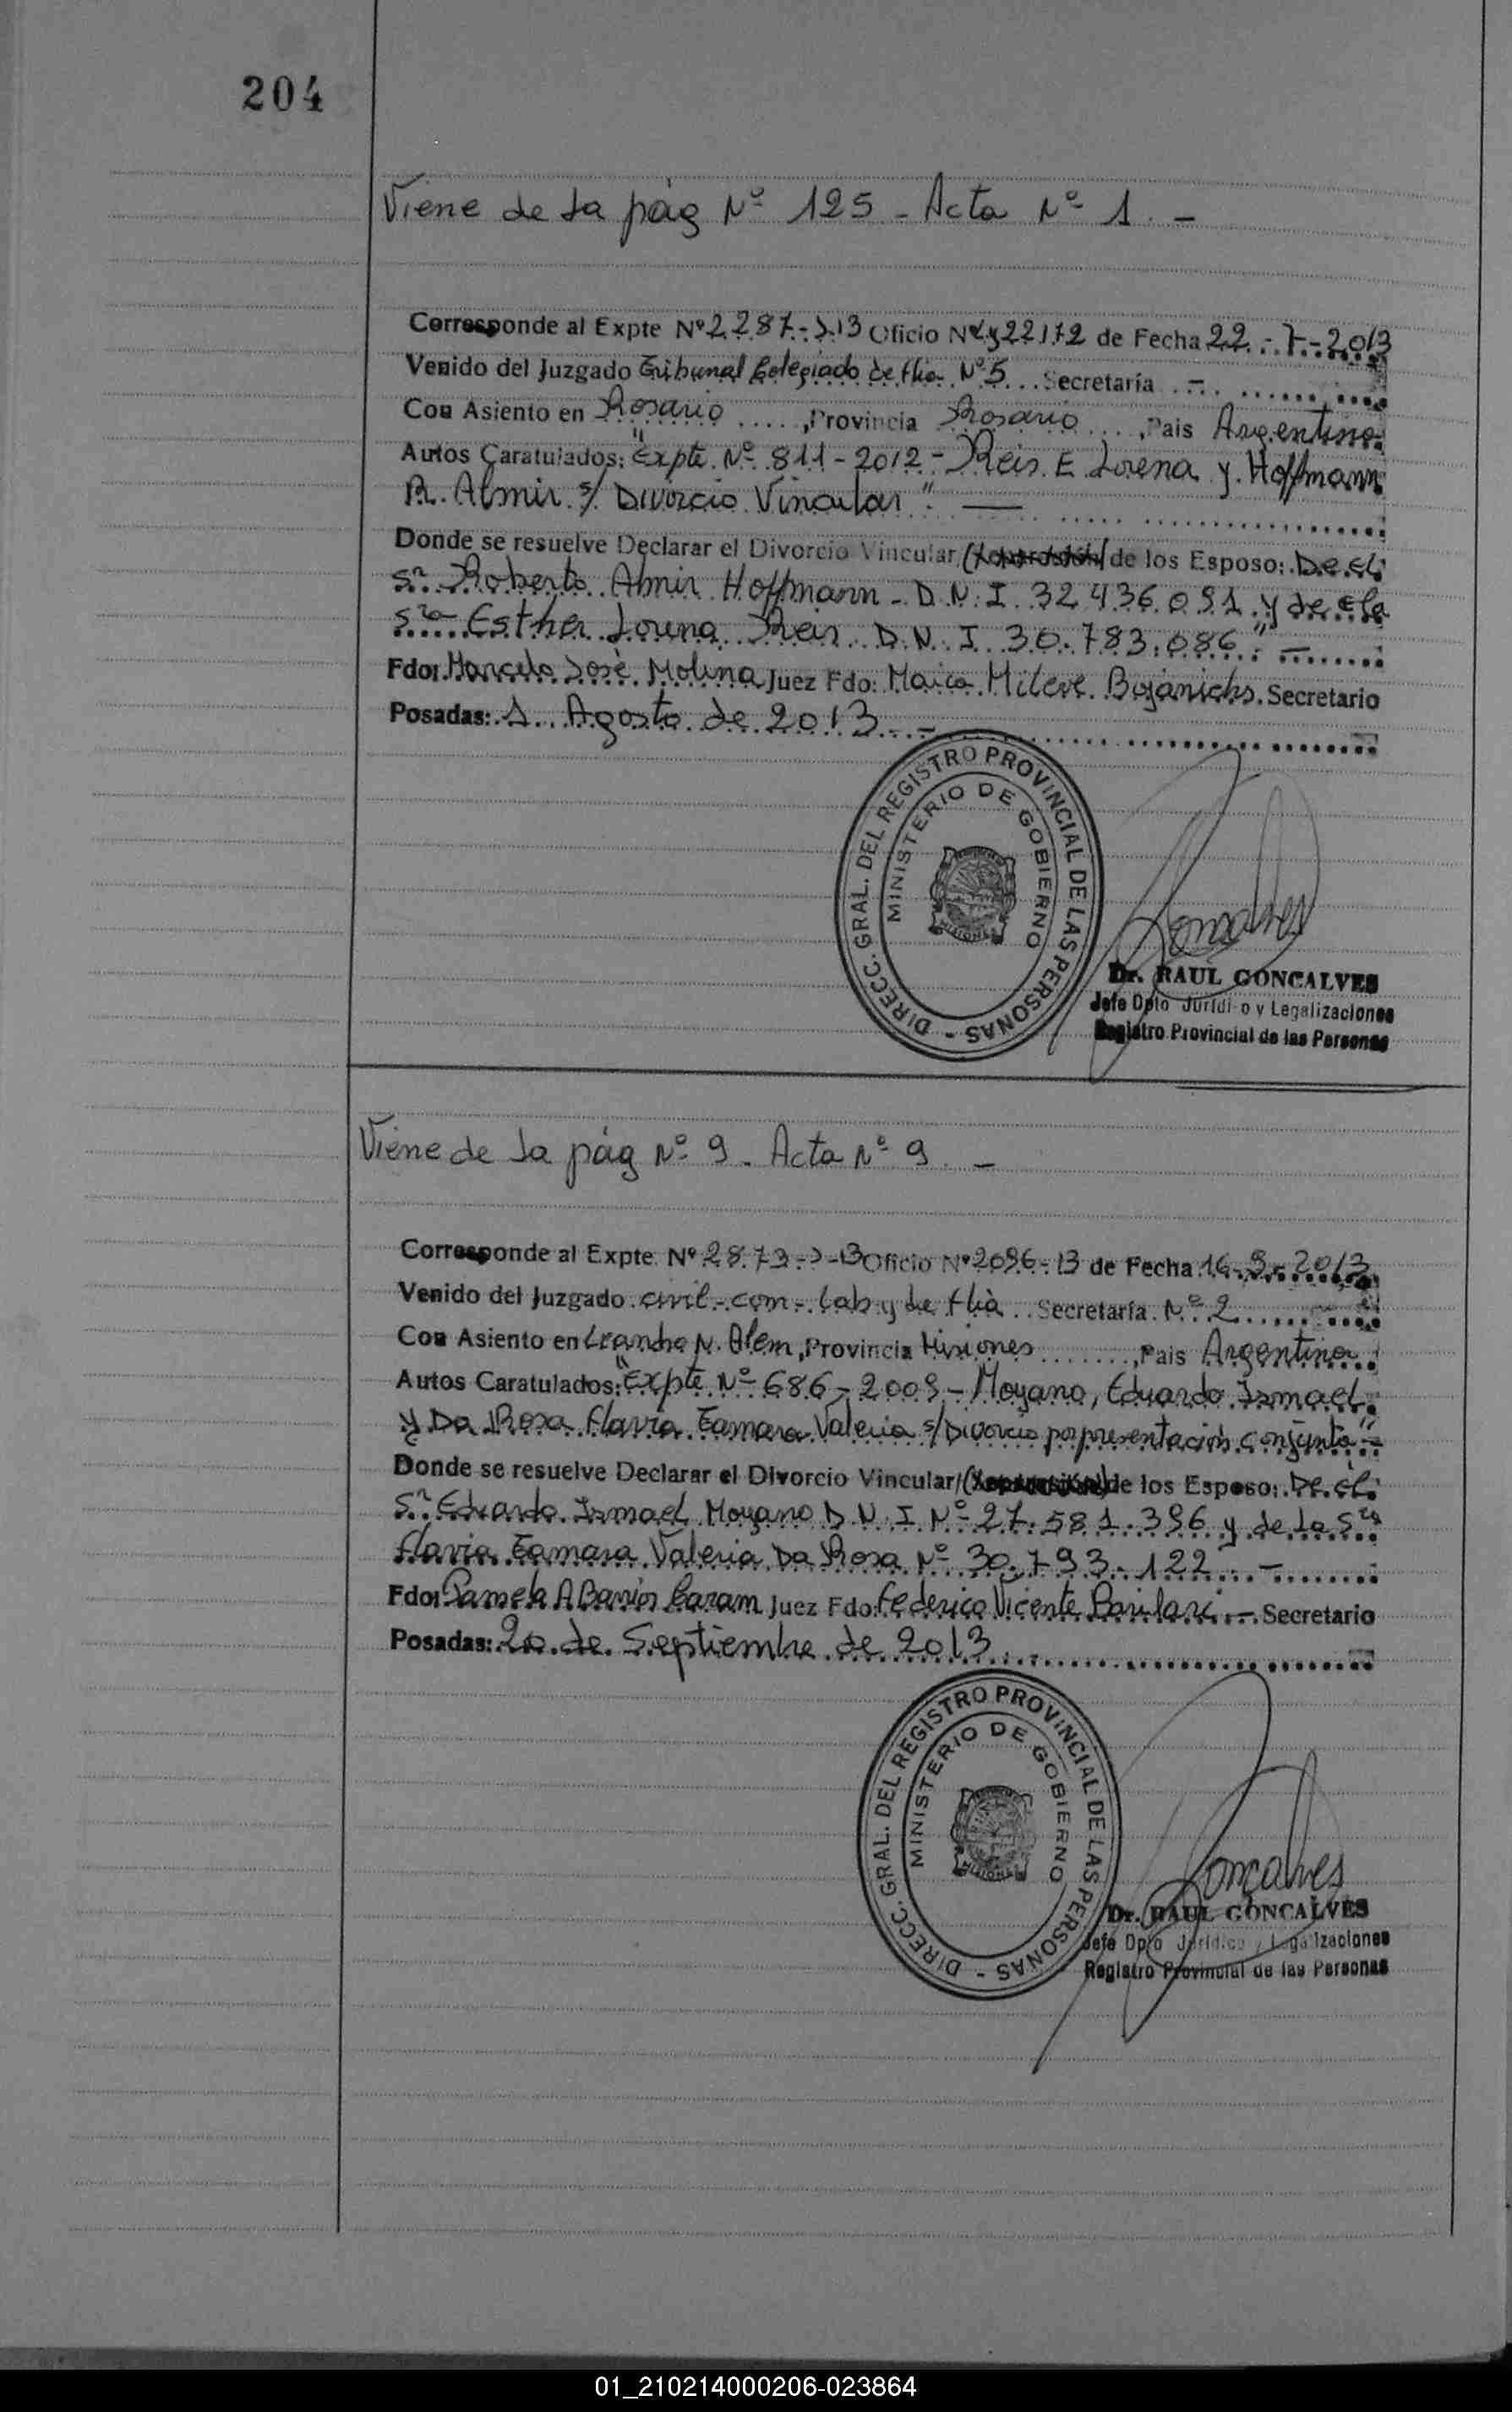 204
Viene de la pág Nº 125 - Acta Nº 1. -
Corresponde al Expte Nº 2287-J-13 Oficio Nº y 22172 de Fecha 22.-7-2013
Venido del Juzgado Tribunal Colegiado de flia. Nº 5 Secretaría -
Con Asiento en Rosario, Provincia Rosario, País Argentina.
Autos Caratulados: "Expte. Nº 811-2012- Reis E. Lorena y Hoffmann
R. Almir s/ Divorcio Vincular". —
Donde se resuelve Declarar el Divorcio Vincular de los Esposo: De él:
Sr. Roberto Almir Hoffmann - D.N.I. 32.436.091 y de ella
Sra Esther Lorena Reis D.N.I. 30.783.086." -
Fdo: Marcelo José Molina Juez Fdo: Maica Mileve Bojanichs. Secretario
Posadas: 1 Agosto de 2013. -
DIRECC. GRAL. DEL REGISTRO PROVINCIAL DE LAS PERSONAS -
MINISTERIO DE GOBIERNO
MISIONES
Goncalves
Dr. RAUL GONCALVES
Jefe Dpto Jurídico y Legalizaciones
Registro Provincial de las Personas
Viene de la pág Nº 9 - Acta Nº 9. -
Corresponde al Expte Nº 2873-J-13 Oficio Nº 2096-13 de Fecha 16-9-2013
Venido del Juzgado civil.-com.- Lab y de flia Secretaría Nº 2
Con Asiento en Leandro N. Alem, Provincia Misiones, País Argentina
Autos Caratulados: "Expte. Nº 686-2009 - Moyano, Eduardo Izmael
y Da Rosa Flavia Tamara Valeria s/ Divorcio por presentación conjunta" -
Donde se resuelve Declarar el Divorcio Vincular de los Esposo: De él:
Sr. Eduardo Izmael Moyano D.N.I. Nº 27.581.396 y de la Sra
Flavia Tamara Valeria Da Rosa Nº 30.793.122. -
Fdo: Pamela A Barrios Caram Juez Fdo: Federico Vicente Barilari.- Secretario
Posadas: 20 de Septiembre de 2013
DIRECC. GRAL. DEL REGISTRO PROVINCIAL DE LAS PERSONAS -
MINISTERIO DE GOBIERNO
MISIONES
Goncalves
Dr. RAUL GONCALVES
Jefe Dpto Jurídico y Legalizaciones
Registro Provincial de las Personas
01_210214000206-023864